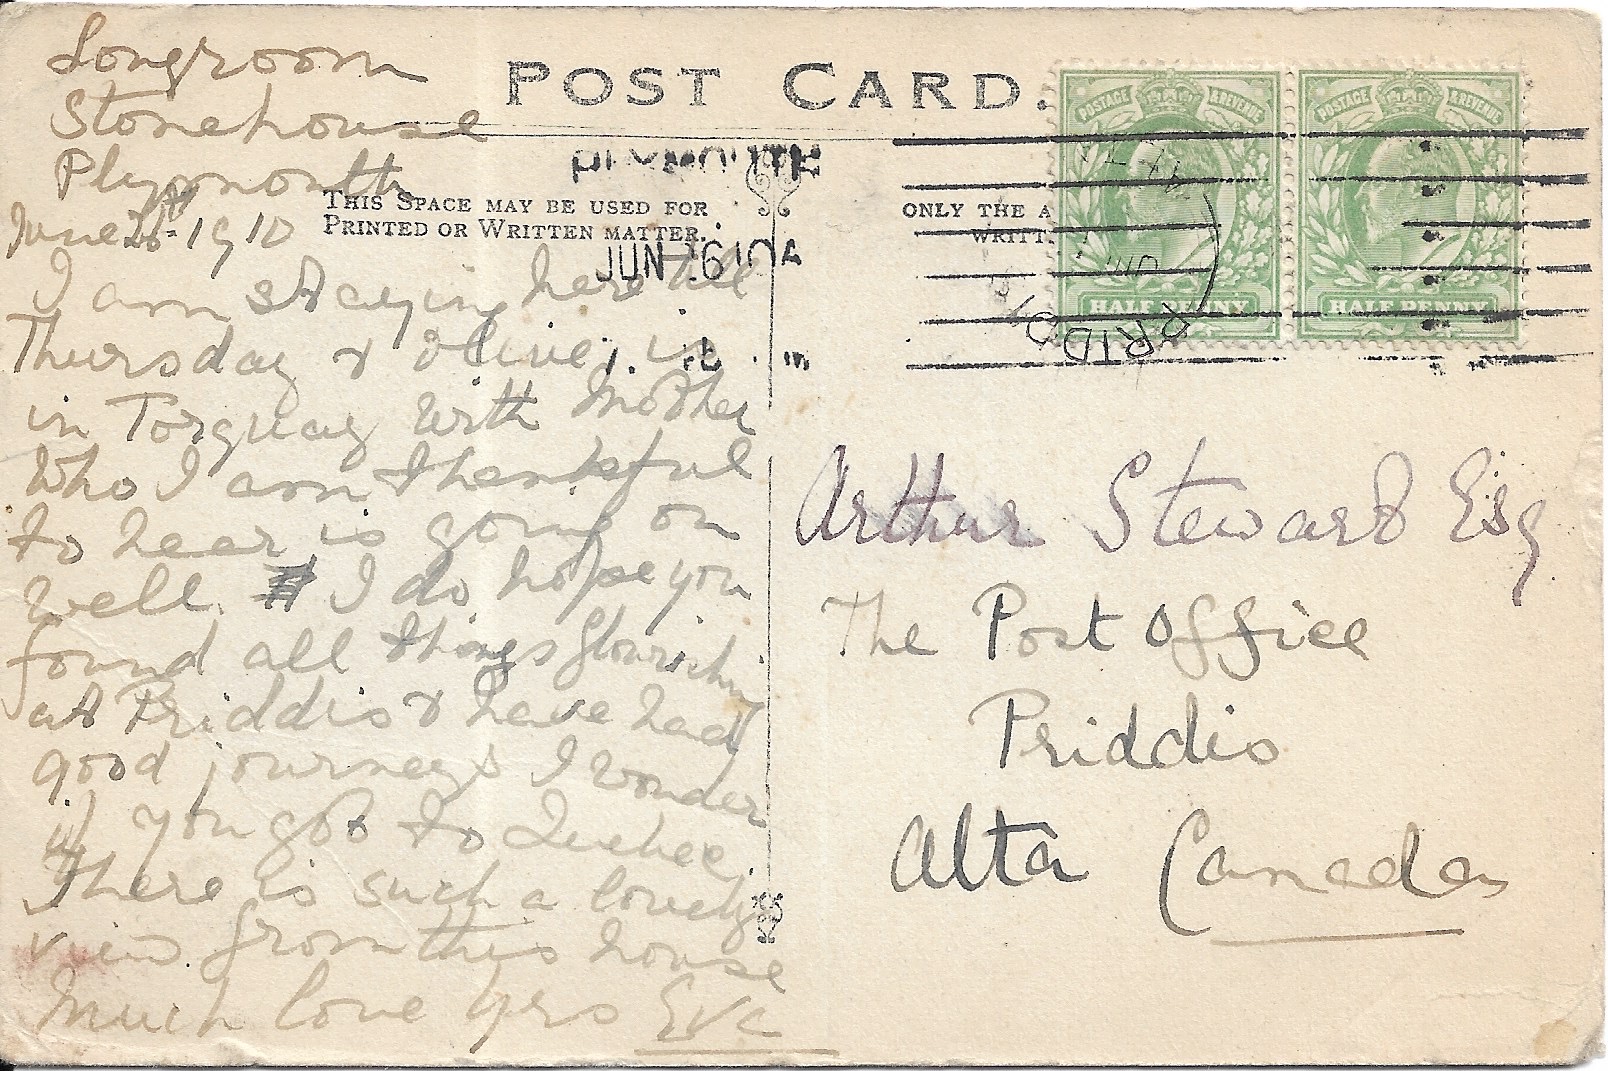 POST CARD.
Longroom
Stonehouse
Plymouth
June 26th 1910
THIS SPACE MAY BE USED FOR
PRINTED OR WRITTEN MATTER.
I am staying here till
Thursday & Olive is
in Torquay with Mother
Who I am thankful
to hear is going on
well. I do hope you
found all things flourishing
at Priddis & have had
good journeys I wonder
if you got to Quebec.
There is such a lovely
view from this house
Much love yrs Eva
PLYMOUTH
JUN 26 10
ONLY THE A
WRITT
POSTAGE & REVENUE
HALF PENNY
POSTAGE & REVENUE
HALF PENNY
PRIDDIS
Arthur Steward Esq
The Post Office
Priddis
Alta Canada